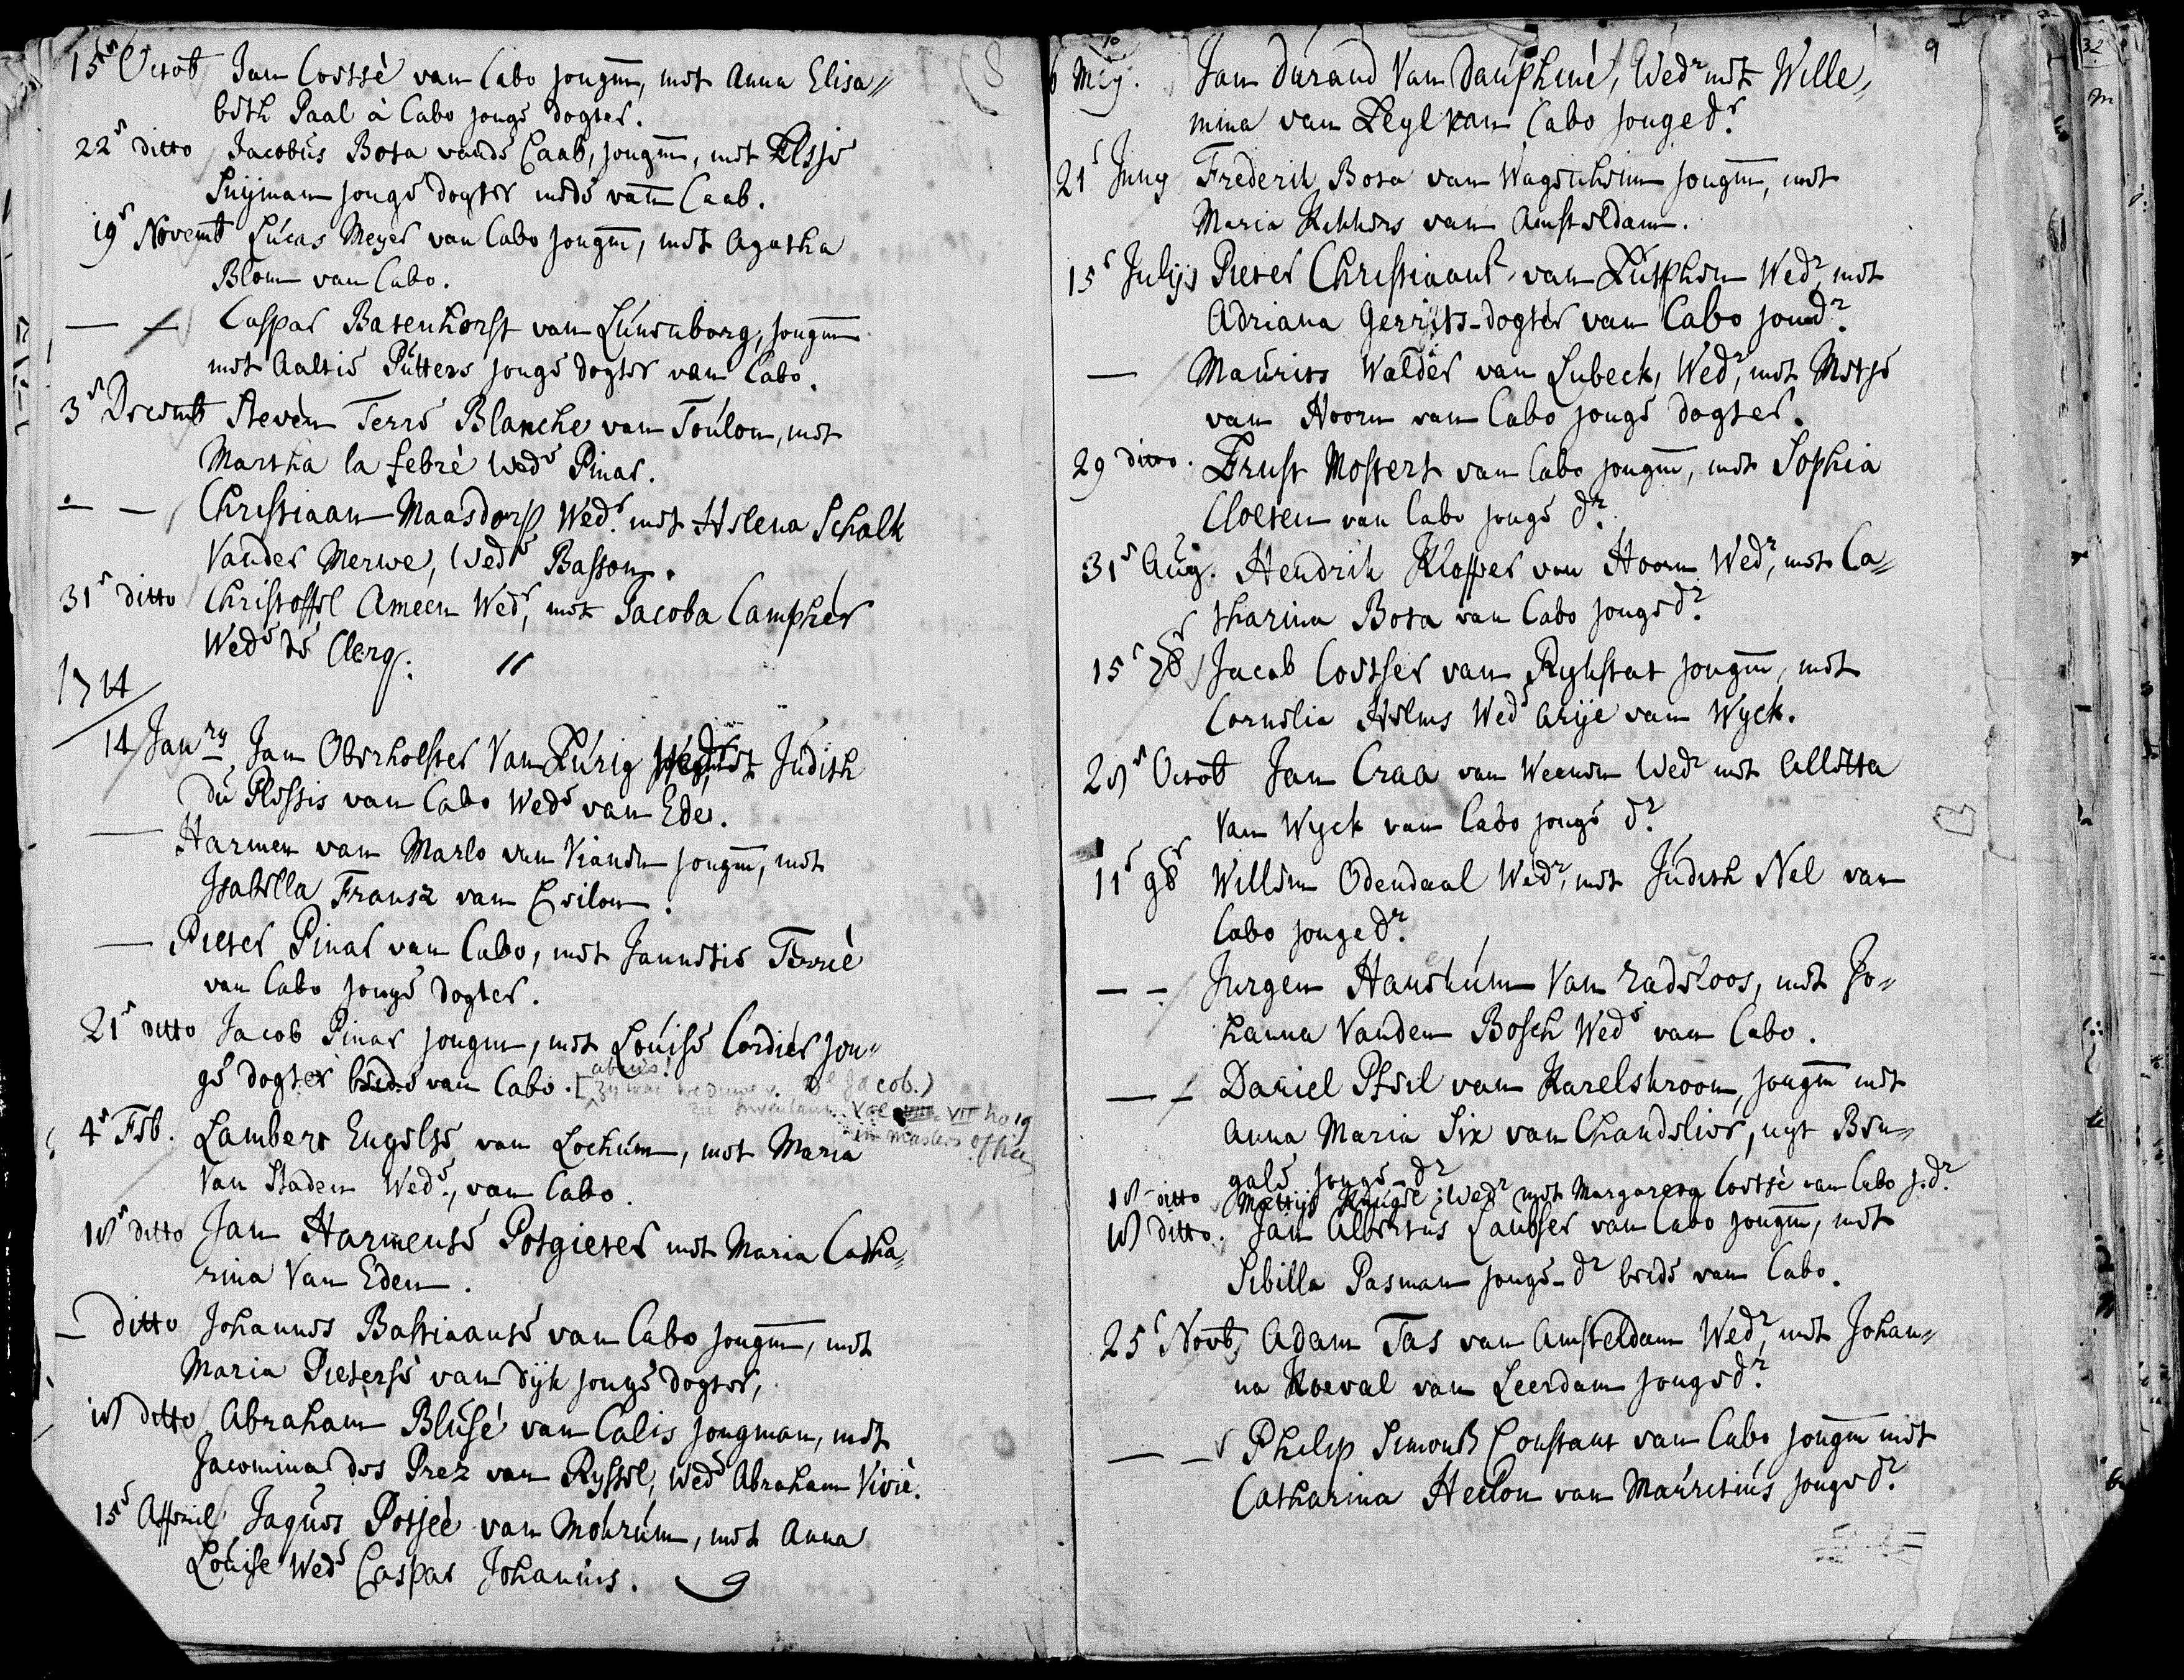 8
15 Octob Jan Coetsé van Cabo jongm, met Anna Elisa„
beth Paal à Cabo jonge dogter.
22 ditto Jacobus Bota vande Caab, jongm, met Elsje
Snijman jonge dogter mede van Caab.
19 Novemb Lucas Meyer van Cabo jongm, met Agatha
Blom van Cabo.
— — Caspar Batenhorst van Lunenborg, jongm
met Aaltie Putters jonge dogter van Cabo.
3 Decemb Steven Terré Blanche van Toulon, met
Martha la febre Wede Pinar.
— — Christiaan Maasdorp Wedr met Helena Schalk
vander Merwe, Wede Basson.
31 ditto Christoffel Ameen Wedr, met Jacoba Campher
Wede de Clerq.
1714
14 Janry Jan Oberholster van Zurig met Judith
du Plessis van Cabo Wede van Eden.
— Harmen van Marlo van Vianen jongm, met
Isabella Fransz van Ceilon.
— Pieter Pinar van Cabo, met Jannetie Terrié
van Cabo jonge dogter.
21 ditto Jacob Pinar jongm, met Louise Cordier jon„
ge dogter beide van Cabo. [abuis! zy was weduwe v. Jacob.)
zie Inventaris Vol VII no 19
in Masters office
4 Feb. Lambert Engelse van Lochum, met Maria
van Staden Wede, van Cabo.
18 ditto Jan Harmense Potgieter met Maria Catha„
rina van Eden.
— ditto Johannes Bastiaanse van Cabo jongm, met
Maria Pieterse van Dijk jonge dogter,
18 ditto Abraham Blusé van Calis jongman, met
Jacomina des Prez van Ryssel, Wede Abraham Vivié.
15 April Jaques Potjeé van Mohrum, met Anna
Louise Wede Caspar Johannis.
9
10
6 Mey. Jan Durand van Dauphiné, Wedr met Wille„
mina van Zeyl van Cabo jonge dr
21 Juny Frederik Bota van Wagenheim jongm, met
Maria Kikkers van Amsteldam.
15 Julij Pieter Christiaans van Zutphen Wedr, met
Adriana Gerrits-dogter van Cabo jon dr
— Maurits Walder van Lubeck, Wedr, met Metje
van Hoorn van Cabo jonge dogter.
29 ditto. Ernst Mostert van Cabo jongm, met Sophia
Cloeten van Cabo jonge dr
31 Aug. Hendrik Klopper van Hoorn Wedr, met Ca„
tharina Bota van Cabo jonge dr
15 7br Jacob Coetser van Rykstat jongm, met
Cornelia Helms Wede Arije van Wyck.
28 Octob Jan Craa van Weenen Wedr met Alletta
van Wyck van Cabo jonge dr
11 9br Willem Odendaal Wedr, met Judith Nel van
Cabo jonge dr
— — Jurgen Hanskum van Radeloos, met Jo„
hanna vanden Bosch Wede van Cabo.
— — Daniel Pfeil van Karelskroon, jongm met
Anna Maria Six van Chandelier, uyt Ben„
gale jonge-dr
18 ditto Mattijs Kruger, Wedr met Margareta Coetsé van Cabo j.dr
18 ditto. Jan Albertus Laubser van Cabo jongm, met
Sibilla Pasman jonge-dr beide van Cabo.
25 Novb Adam Tas van Amsteldam Wedr, met Johan„
na Koeval van Leerdam jonge dr
— — Philip Simonsz Constant van Cabo jongm met
Catharina Heilon van Mauritius jonge dr